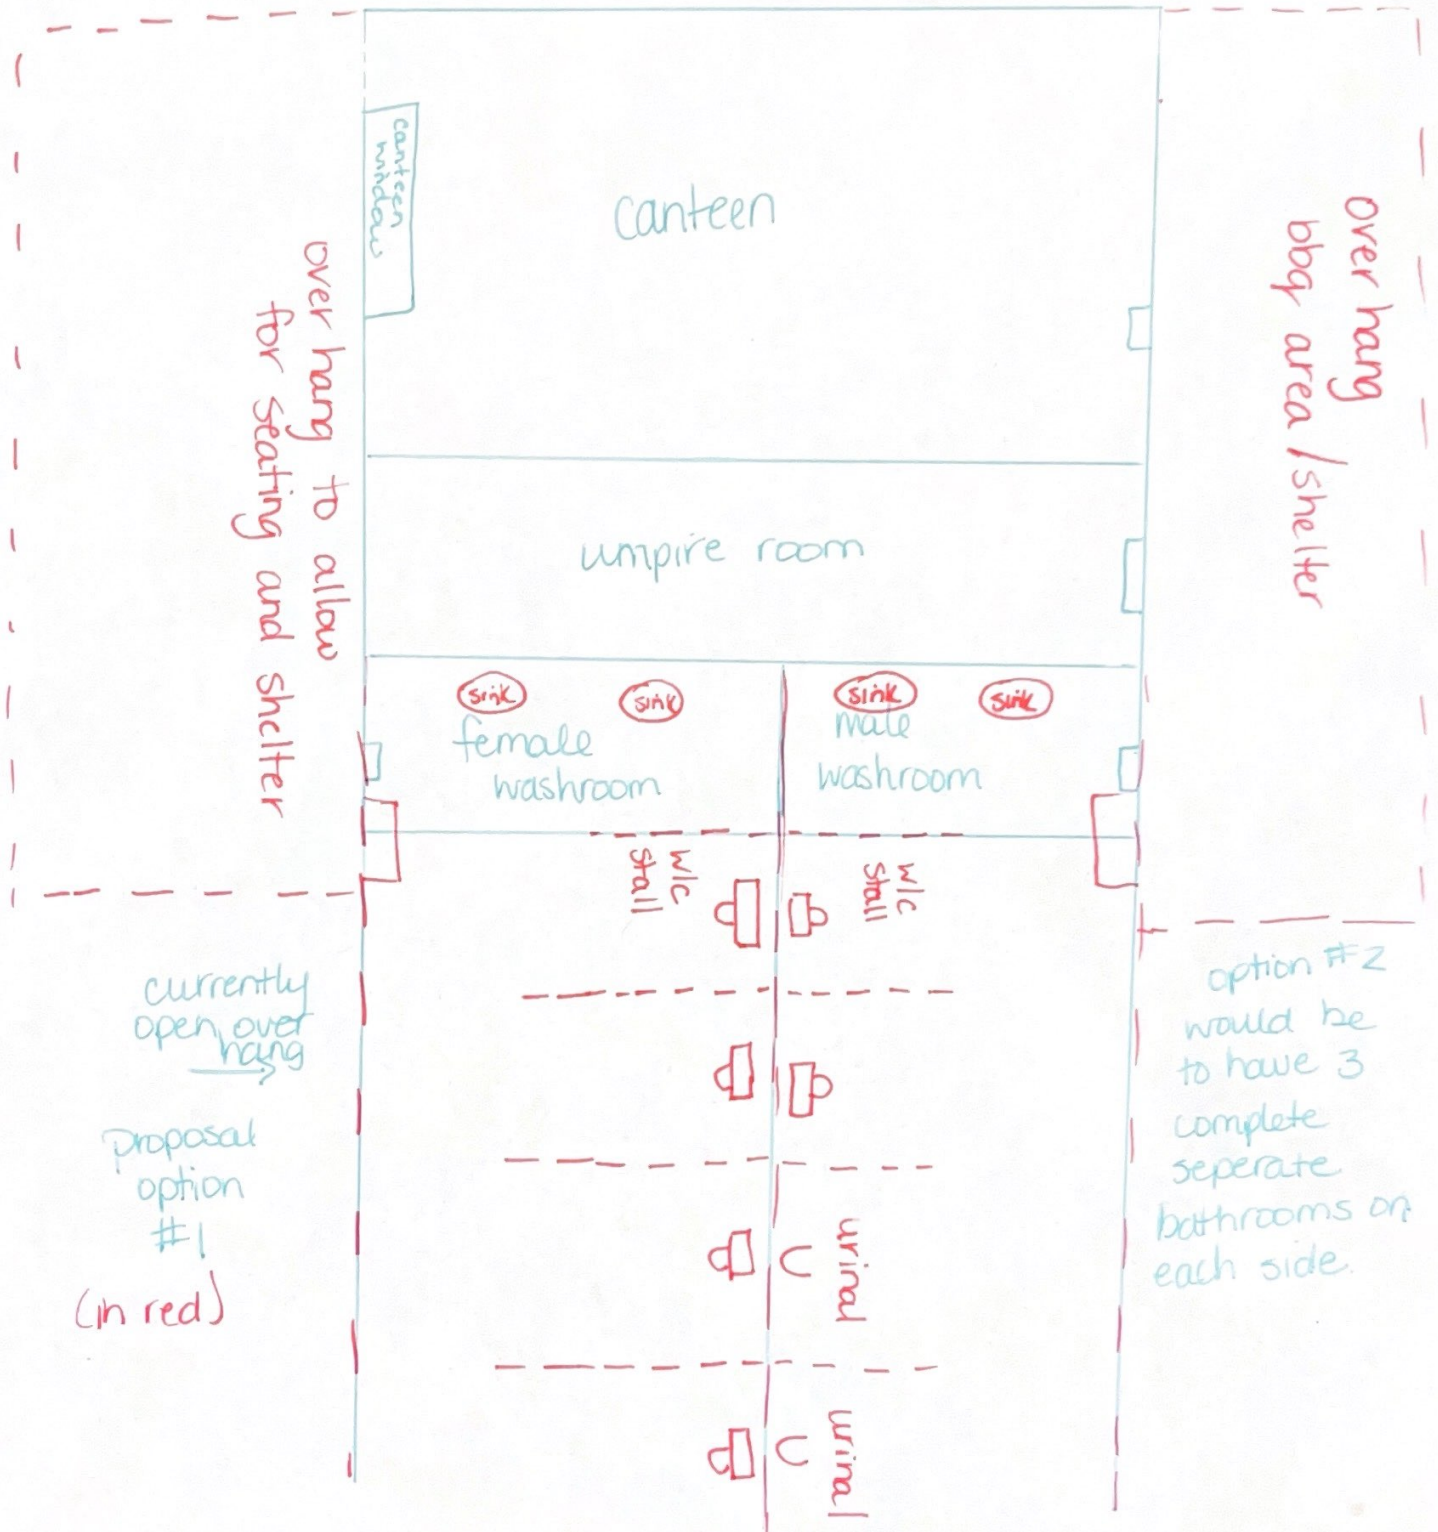 canteen
window
canteen
over hang to allow
for seating and shelter
over hang
bbq area/shelter
umpire room
sink
sink
sink
sink
female
washroom
male
washroom
w/c
stall
w/c
stall
currently
open over
hang
proposal
option
#1
(in red)
option #2
would be
to have 3
complete
seperate
bathrooms on
each side.
urinal
urinal